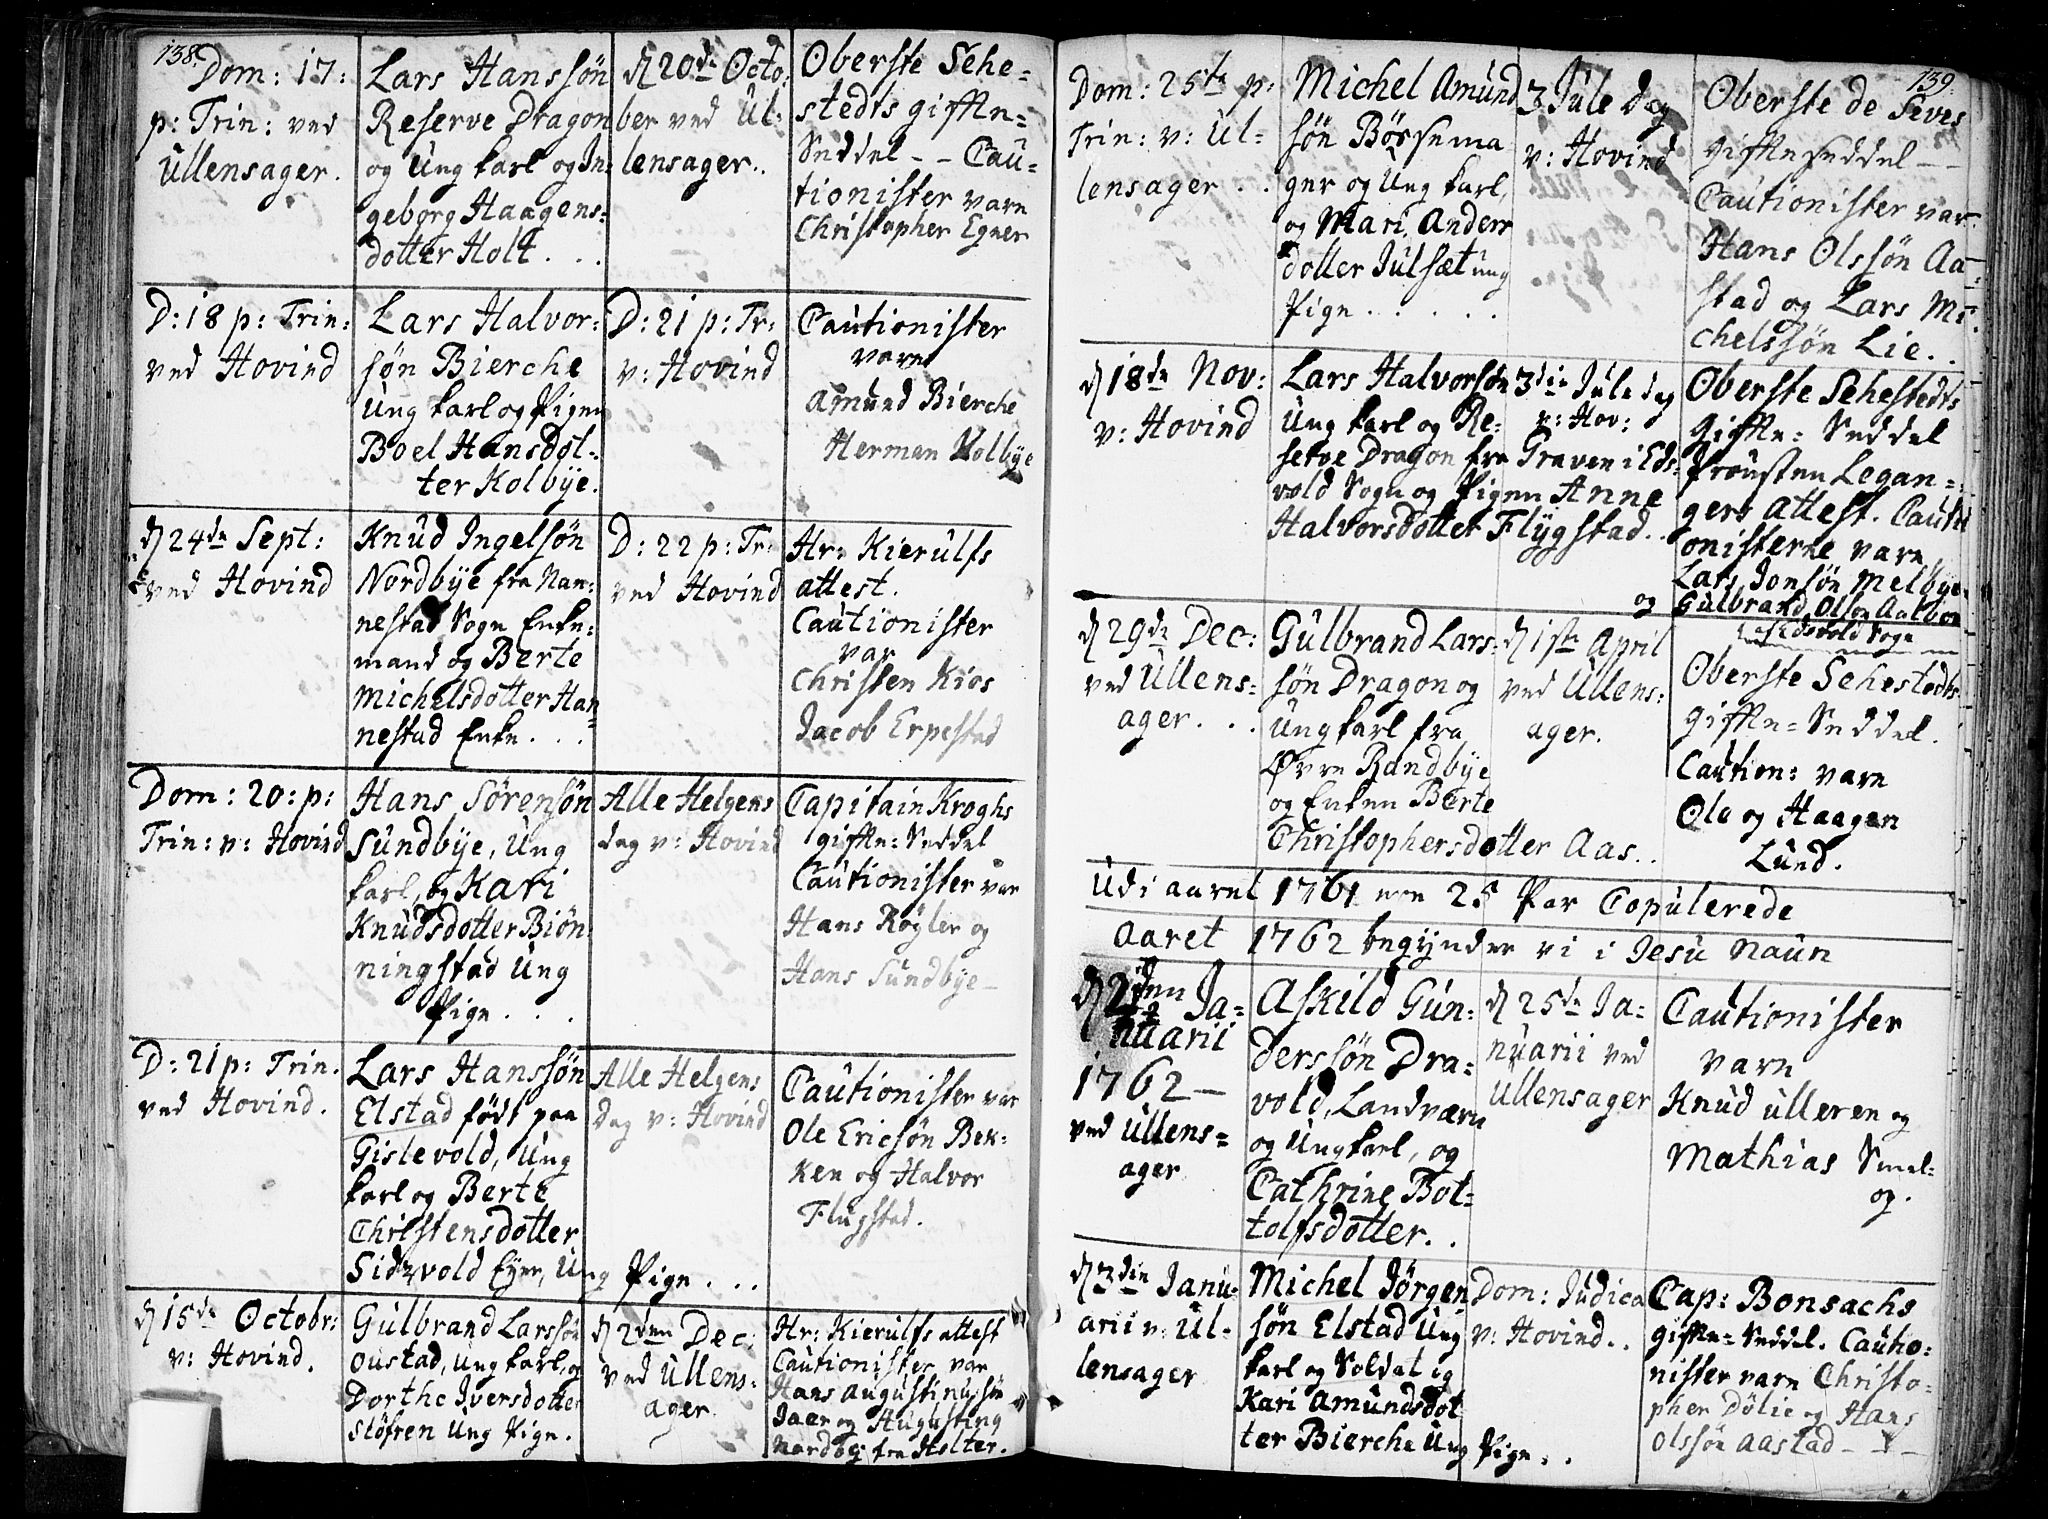 138.
Dom: 17:
p: Trin: ved
Ullensager.
Lars Hanssön
Reserve Dragon
og Ung karl og In-
geborg Haagens-
dotter Holt . . .
d 20de Octo:
ber ved Ul-
lensager..
Oberste Sehe-
stedts gifte-
Seddel - - Cau-
tionister vare
Christopher Egner
D: 18 p: Trin:
ved Hovind
Lars Halvor-
sön Bierche
Ung karl og Pigen
Boel Hansdot-
ter Kolbÿe.
D: 21 p: Tr:
v: Hovind
Cautionister
vare
Amund Bierche
Herman Kolbÿe
d 24de Sept:
ved Hovind
Knud Ingelsön
Nordbÿe fra Nan-
nestad Sogn Enke-
mand og Berte
Michelsdotter Han-
nestad Enke . . .
D: 22 p: Tr:
ved Hovind
Hr: Kierulfs
attest.
Cautionister
var
Christen Kios
Jacob Erpestad
Dom: 20: p:
Trin: v: Hovind
Hans Sörensön
Sundbÿe, Ung
karl, og Kari
Knudsdotter Biön-
ningstad Ung
Pige . . .
Alle Helgens
dag v: Hovind
Capitain Kroghs
gifte-Seddel
Cautionister var
Hans Röÿler og
Hans Sundbÿe -
D: 21 p: Trin.
ved Hovind.
Lars Hanssön
Elstad födt paa
Gislevold, Ung
karl og Berte
Christensdotter
Sidzvold Eÿer, Ung Pige . . .
Alle Helgens
Dag v: Hovind
Cautionister var
Ole Ericsön Bek-
ken og Halvor
Flugstad.
d 15de Octobr:
v: Hovind.
Gulbrand Larssön
Oustad, Ung karl, og
Dorthe Iversdotter
Slöfren Ung Pige.
d 2den Dec:
ved Ullens-
ager
Hr: Kierulfs attest
Cautionister var
Hans Augustinussön
Jaer og Augusting
Nordbÿ fra Holter.
139.
Dom: 25te p:
Trin: v: Ul-
lensager . .
Michel Amund
sön Börsema
ger og Ung karl,
og Mari Anders
dotter Julsæt ung
Pige . . . . .
3 Jule dag
v: Hovind
Oberste de Seves
gifteseddel - -
Cautionister var
Hans Olssön Aa-
stad og Lars Mi-
chelssön Lie. .
d 18de Nov:
v: Hovind
Lars Halvorsön
Ung karl og Re-
serve Dragon fra Graven i Eds-
vold Sogn og Pigen Anne
Halvorsdotter Flÿgstad. .
3die Jule dag
v: Hov:
Oberste Sehestedts
Gifte- Seddel
Prousten Legan-
gers Attest. Cauti
onisterne vare
Lars Jonsön Melbÿe
og Gulbrand Olsön Aalboe
af Edsvold Sogn
d 29de Dec:
ved Ullens-
ager. . .
Gulbrand Lars-
sön Dragon og
Ungkarl fra
Øvre Randbÿe
og Enken Berte
Christophersdotter Aas. .
d 1ste April
ved Ullens-
ager.
Oberste Sehestedts
Gifte-Seddel.
Caution: vare
Ole og Haagen
Lund.
Udi aaret 1761 ere 25 Par Copulerede
Aaret 1762 begÿnder vi i Jesu Naun
d 2den Ja-
nuarii
1762 -
ved Ullens-
ager
Askild Gun-
derssön Dra-
vold, Landværn
og Ungkarl, og
Cathrine Bot-
tolfsdotter. .
d 25de Ja-
nuarii ved
Ullensager
Cautionister
vare
Knud Ulleren og
Mathias Smel-
og.
d 3die Janu-
arii v: Ul-
lensager
Michel Jörgen
sön Elstad Ung
karl og Soldat ig
Kari Amundsdot
ter Bierche Ung Pige . .
Dom: Judica
v: Hovind. .
Cap: Bonsachs
Gifte-Seddel. Cautio-
nister vare Christo-
pher Dölie og Hans
Olssön Aastad - - -